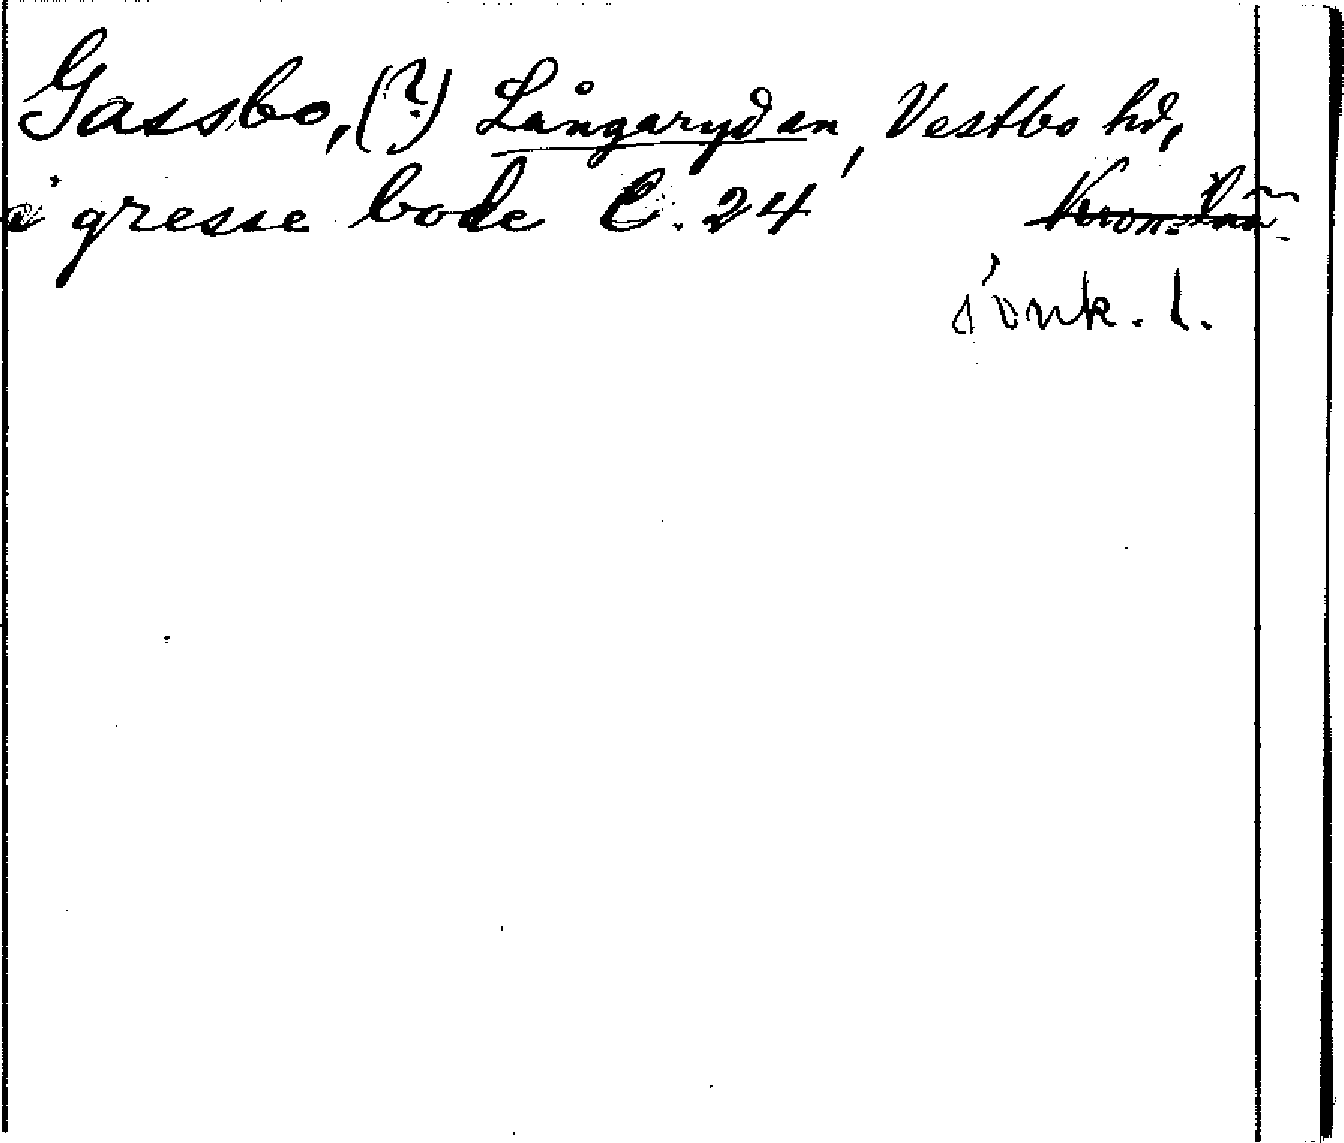 Gassbo, (?) Långaryd sn, Vestbo hd,
i gresse bode C. 24 Kron. län
Jönk. l.